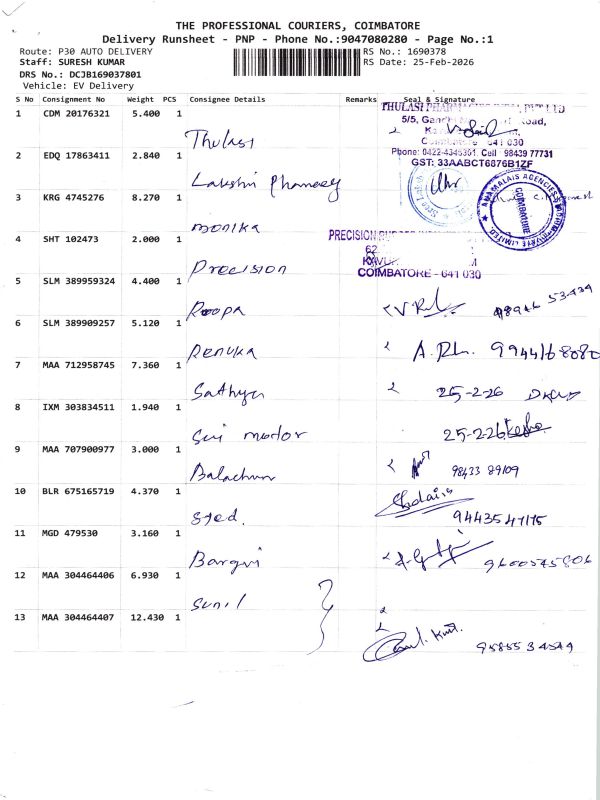 THE PROFESSIONAL COURIERS, COIMBATORE
Delivery Runsheet - PNP - Phone No.:9047080280 - Page No.:1
Route: P30 AUTO DELIVERY RS No.: 1690378
Staff: SURESH KUMAR RS Date: 25-Feb-2026
DRS No.: DCJB169037801
Vehicle: EV Delivery
S No Consignment No Weight PCS Consignee Details Remarks Seal & Signature
1 CDM 20176321 5.400 1 Thulasi
THULASI
5/5, Road,
641 030
Phone: 0422-4345361, Cell : 98439 77731
GST: 33AABCT6876B1ZF
2 EDQ 17863411 2.840 1 Lakshmi Pharmacy
3 KRG 4745276 8.270 1 Monika
ANAMALAIS AGENCIES PRIVATE LIMITED
COIMBATORE
4 SHT 102473 2.000 1 Precision
PRECISION
COIMBATORE - 641 030
5 SLM 389959324 4.400 1 Roopa
6 SLM 389909257 5.120 1 Renuka 9944168080
7 MAA 712958745 7.360 1 Sathya 25-2-26
8 IXM 303834511 1.940 1 Sri motor 25-2-26
9 MAA 707900977 3.000 1 98433 89109
10 BLR 675165719 4.370 1 Syed. 9443547175
11 MGD 479530 3.160 1 Bargvi 9600545806
12 MAA 304464406 6.930 1 Sunil
13 MAA 304464407 12.430 1